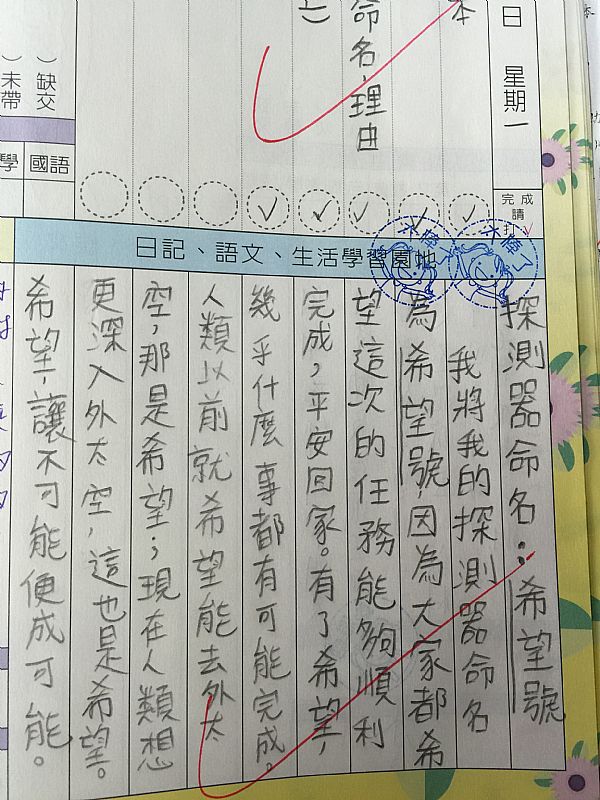 日 星期一
本
命名，理由
）
）缺交
）未帶
國語
學
完成
請
打✓
日記、語文、生活學習園地
太棒了
太棒了
探測器命名：希望號
我將我的探測器命名
為希望號，因為大家都希
望這次的任務能夠順利
完成，平安回家。有了希望，
幾乎什麼事都有可能完成。
人類以前就希望能去外太
空，那是希望；現在人類想
更深入外太空，這也是希望。
希望，讓不可能便成可能。